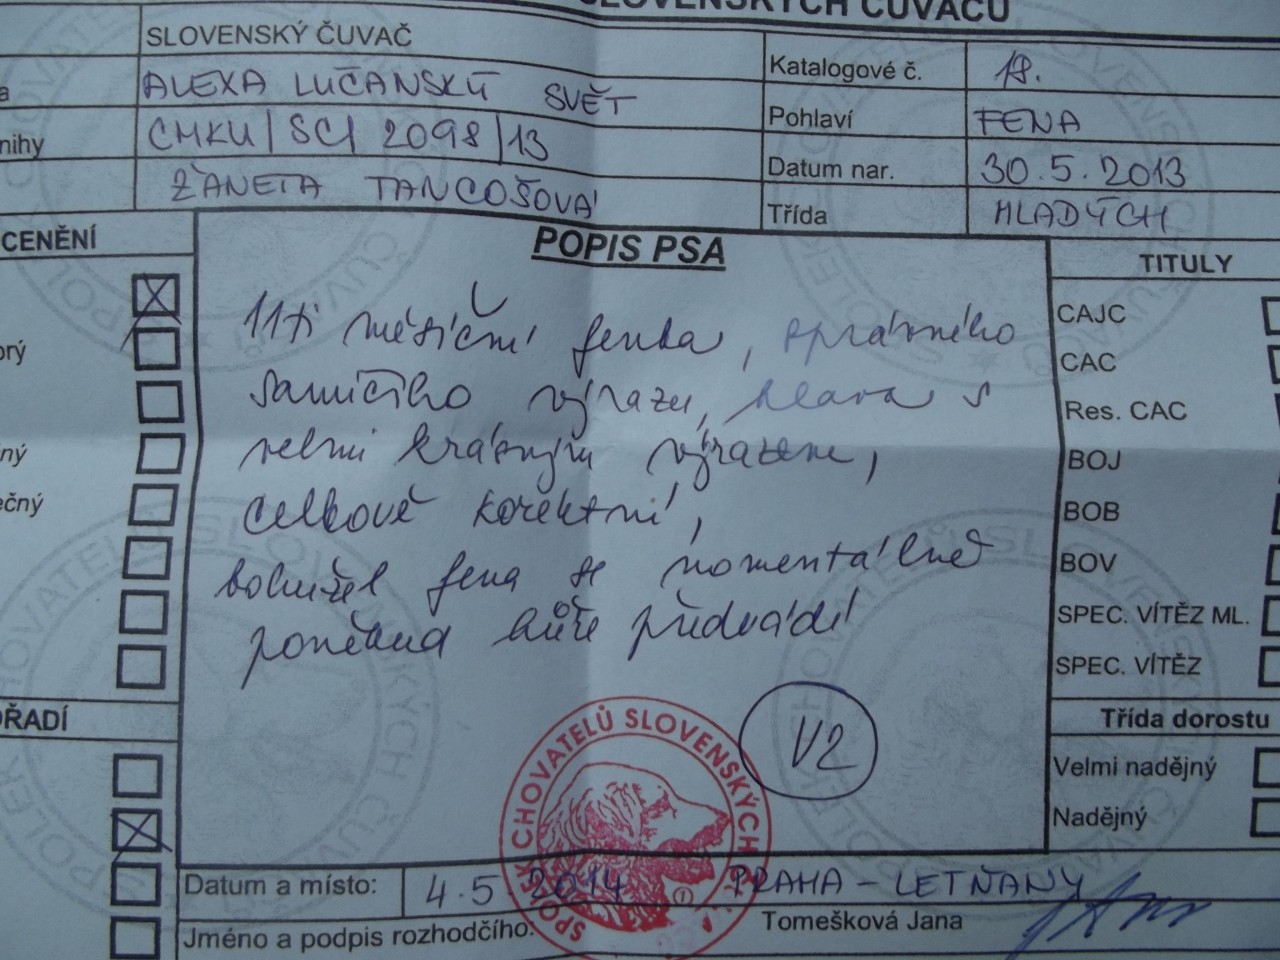 SLOVENSKÝCH ČUVAČŮ
SLOVENSKÝ ČUVAČ
ALEXA LUČANSKÝ SVĚT
nihy CMKU/SCI 2098/13
ŽANETA TANCOŠOVÁ
Katalogové č. 18.
Pohlaví FENA
Datum nar. 30.5.2013
Třída MLADÝCH
CENĚNÍ
orý
ný
ečný
POPIS PSA
11ti měsíční fenka, správného
samičího výrazu, hlava s
velmi krásným výrazem,
celkově korektní,
bohužel fena se momentálně
poněkud hůře předvádí
V2
TITULY
CAJC
CAC
Res. CAC
BOJ
BOB
BOV
SPEC. VÍTĚZ ML.
SPEC. VÍTĚZ
Třída dorostu
Velmi nadějný
Nadějný
OŘADÍ
SPOLEK CHOVATELŮ SLOVENSKÝCH
Datum a místo: 4.5 2014 PRAHA - LETŇANY
Jméno a podpis rozhodčího: Tomešková Jana